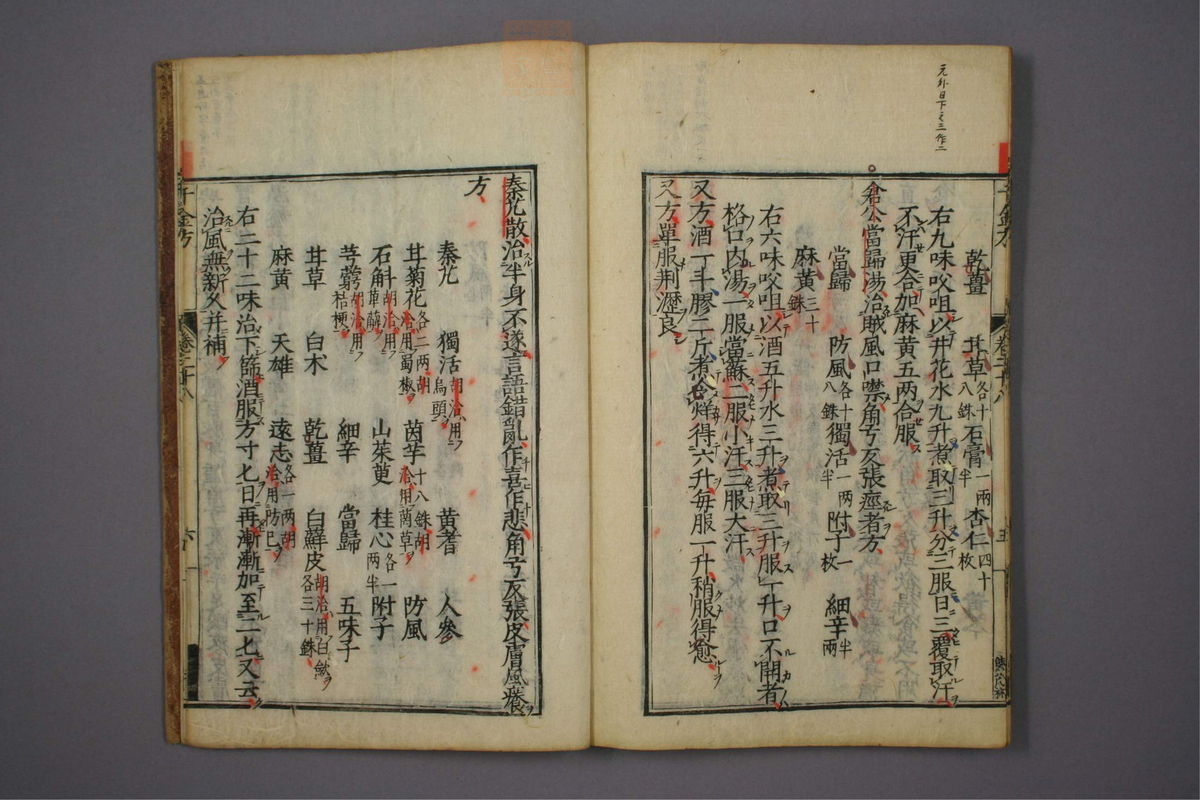 元外日下之三作二
千金方 卷二十八 五
乾薑 甘草各十八銖 石膏一兩半 杏仁四十枚
右九味㕮咀以井花水九升煮取三升分三服日三覆取汗
不汗更合加麻黄五兩合服
倉公當歸湯治賊風口噤角弓反張痙者方
當歸 防風各十八銖 獨活一兩半 附子一枚 細辛半兩
麻黄三十銖
右六味㕮咀以酒五升水三升煮取三升服一升口不開者
格口内湯一服當蘇二服小汗三服大汗
又方酒一斗膠二斤煮令烊得六升每服一升稍服得愈
又方單服荆瀝良
秦艽散治半身不遂言語錯亂乍喜乍悲角弓反張皮膚風癢
方
秦艽 獨活胡洽用烏頭 黄耆 人參
甘菊花各二兩胡洽用蜀椒 茵芋十八銖胡洽用䒽草 防風
石斛胡洽用萆薢 山茱萸 桂心各一兩半 附子
芎藭胡洽用桔梗 細辛 當歸 五味子
甘草 白朮 乾薑 白鮮皮胡洽用白蘞各三十銖
麻黄 天雄 遠志各一兩胡洽用防巳
右二十二味治下篩酒服方寸匕日再漸漸加至二匕又云
治風無新久并補
千金方 六